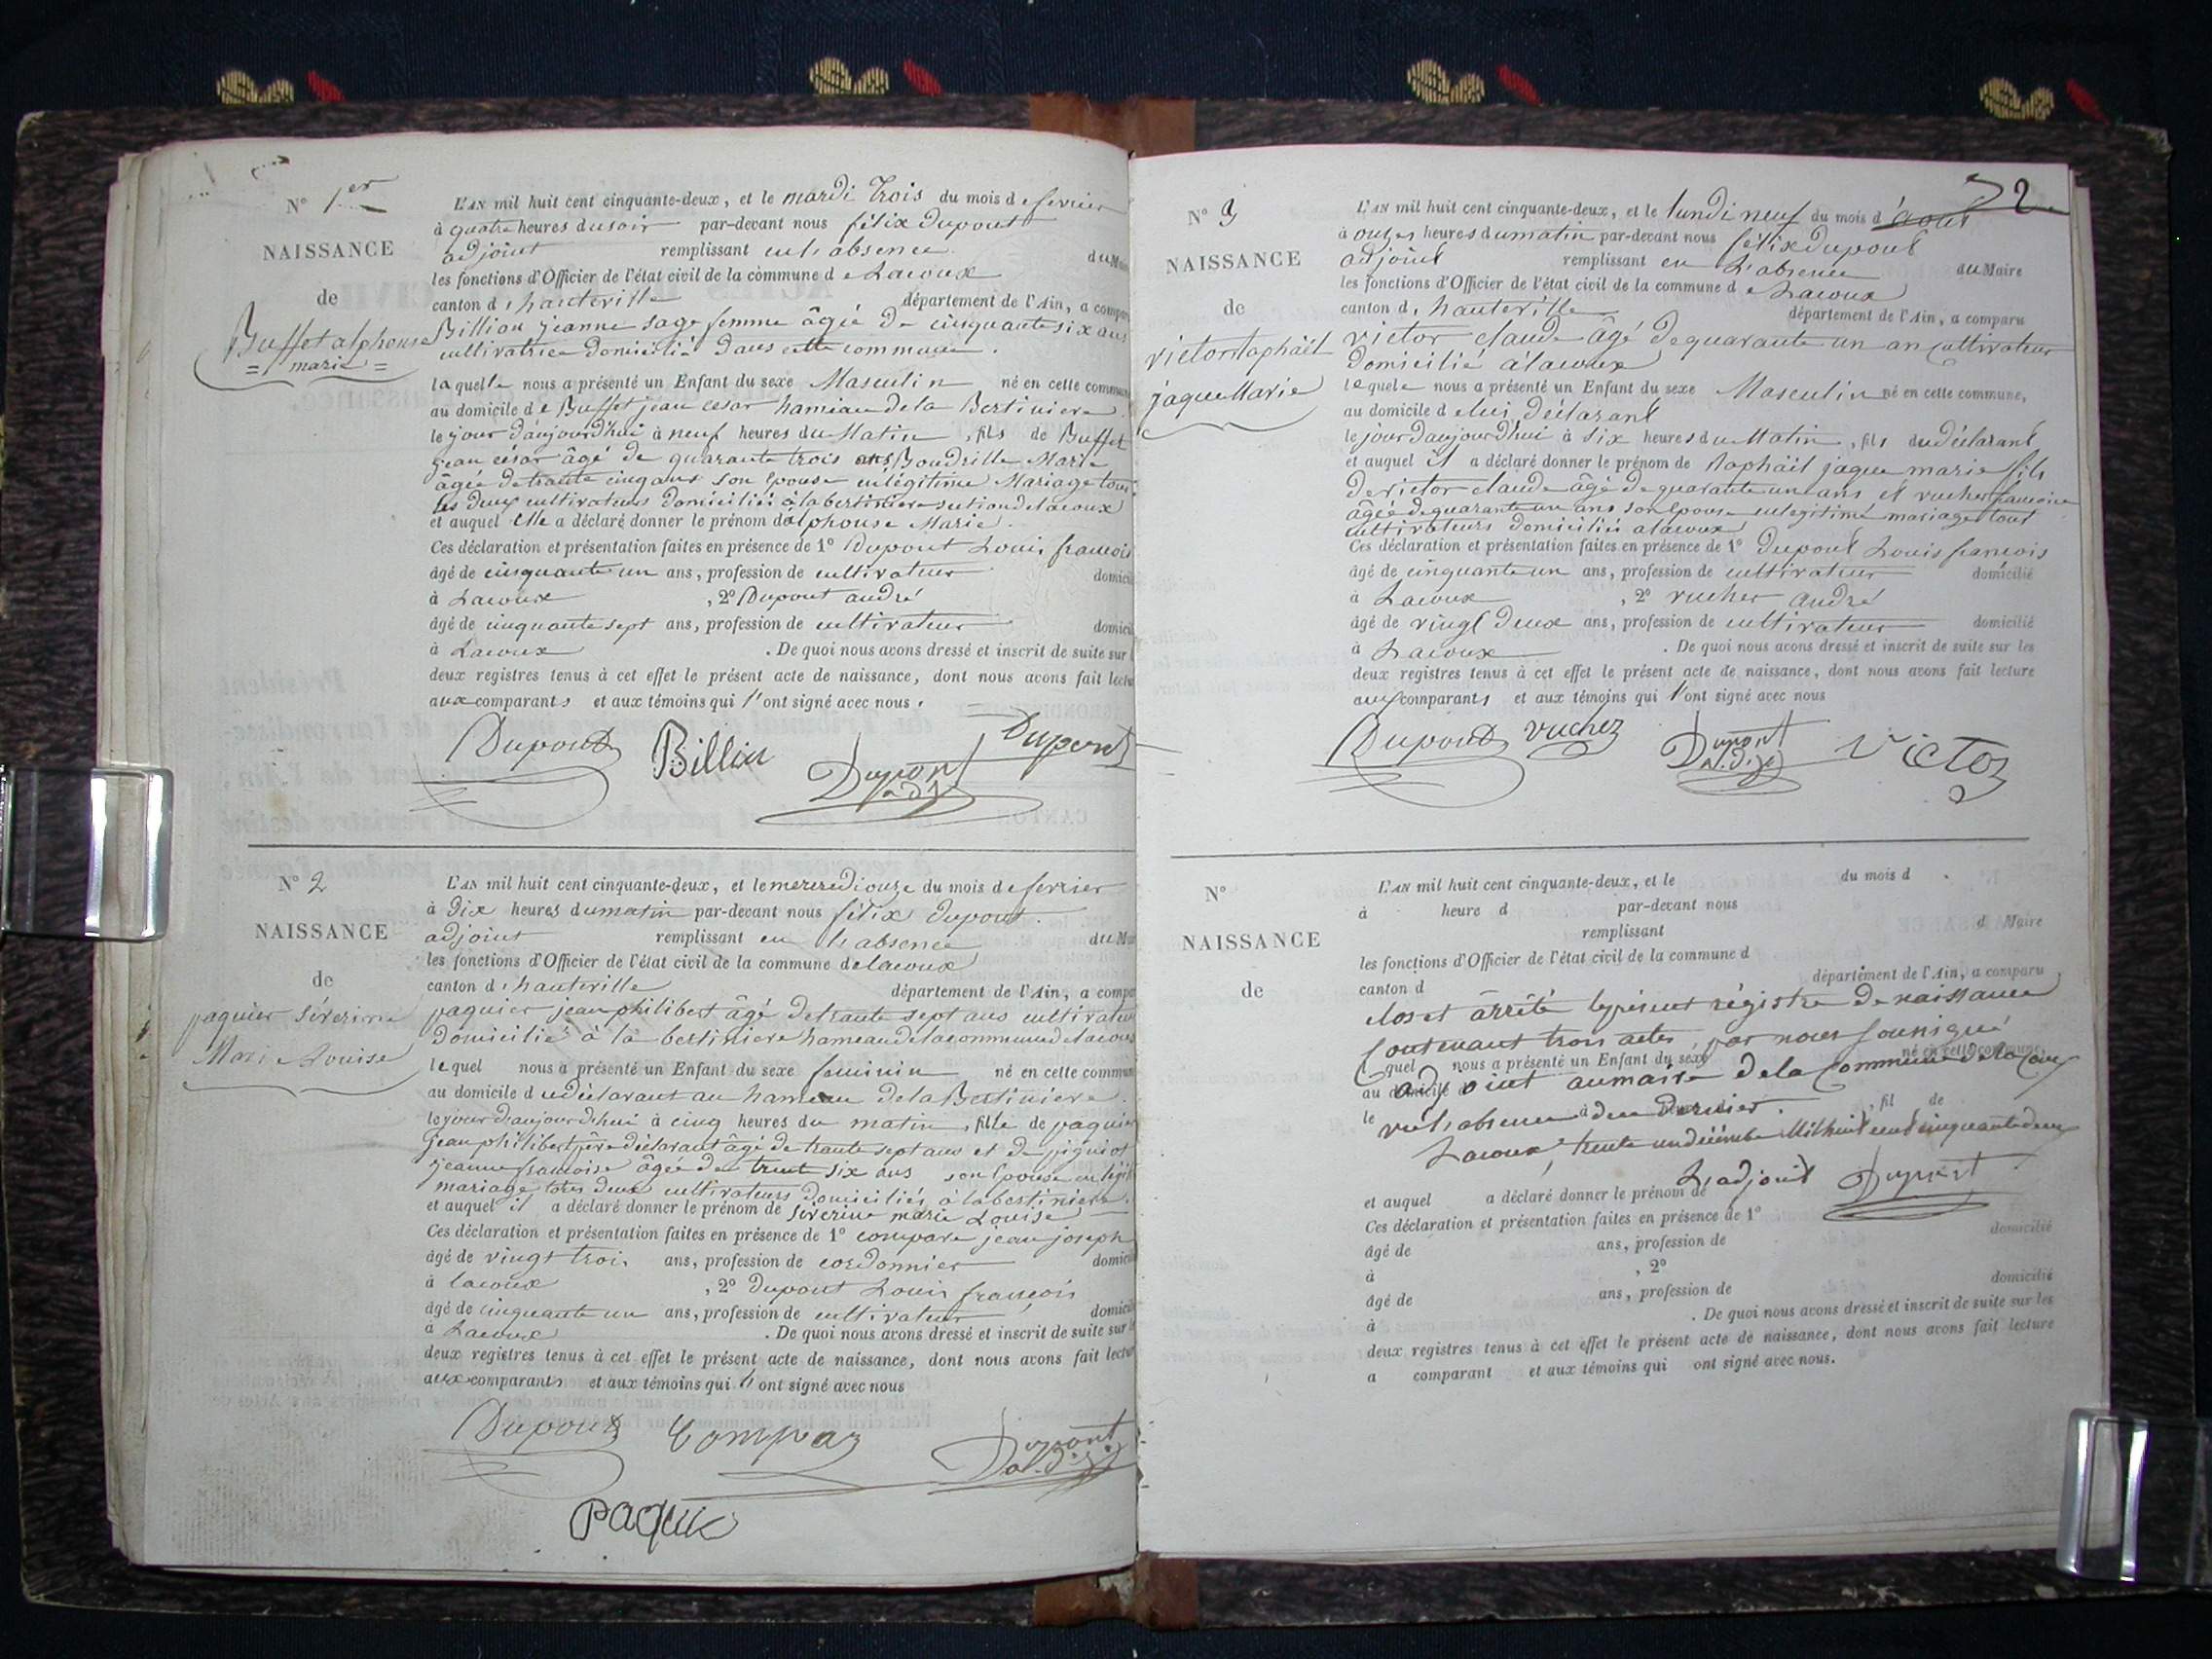 N° 1er
NAISSANCE
de
Buffet alphonse
= marie =
L'AN mil huit cent cinquante-deux, et le mardi trois du mois de fevrier
à quatre heures du soir par-devant nous félix dupont
adjoint remplissant en l'absence du Maire
les fonctions d'Officier de l'état civil de la commune de Lacoux
canton d'hauteville département de l'Ain, a compa
Billion jeanne sage femme âgée de cinquante six ans
cultivatrice domicilié dans cette commune.
laquelle nous a présenté un Enfant du sexe Masculin né en cette commune
au domicile de Buffet jean cesar hameau de la Bertiniere
le jour d'aujourd'hui à neuf heures du Matin, fils de Buffet
jean césar âgé de quarante trois ans, Marie
âgée de trante cinq ans son épouse en légitime Mariage tous
les deux cultivateurs domiciliés à la bertiniere section de lacoux
et auquel elle a déclaré donner le prénom d'alphonse Marie.
Ces déclaration et présentation faites en présence de 1° Dupont Louis francois
âgé de cinquante un ans, profession de cultivateur domicil
à Lacoux, 2° Dupont andré
âgé de cinquante sept ans, profession de cultivateur domicil
à Lacoux. De quoi nous avons dressé et inscrit de suite sur l
deux registres tenus à cet effet le présent acte de naissance, dont nous avons fait lectu
aux comparants et aux témoins qui l'ont signé avec nous.
Dupont Billin Dupont Dupont
adj
N° 2
NAISSANCE
de
paquier séverine
Marie Louise
L'AN mil huit cent cinquante-deux, et le mercredi onze du mois de fevrier
à dix heures du matin par-devant nous félix dupont.
adjoint remplissant en l'absence du M
les fonctions d'Officier de l'état civil de la commune de lacoux
canton d'hauteville département de l'Ain, a compa
paquier jean philibert âgé de trante sept ans cultivateur
domicilié à la bertiniere hameau de la commune de lacoux
lequel nous a présenté un Enfant du sexe feminin né en cette commun
au domicile du déclarant au hameau de la Bertiniere.
le jour d'aujourdhui à cinq heures du matin, fille de paquier
jean philibert père déclarant âgé de trante sept ans et de
jeanne francoise âgée de trent six ans son épouse en légit
mariage, tous deux cultivateurs domiciliés à la bertiniere.
et auquel il a déclaré donner le prénom de séverine marie Louise
Ces déclaration et présentation faites en présence de 1° compare jean joseph
âgé de vingt trois ans, profession de cordonnier domicil
à lacoux, 2° dupont Louis francois
âgé de cinquante un ans, profession de cultivateur domicil
à Lacoux. De quoi nous avons dressé et inscrit de suite sur l
deux registres tenus à cet effet le présent acte de naissance, dont nous avons fait lectur
aux comparants et aux témoins qui l'ont signé avec nous
Dupont Compar Dupont
Paquie
2
N° 3
NAISSANCE
de
victor raphaël
jaque Marie
L'AN mil huit cent cinquante-deux, et le lundi neuf du mois d'aout
à onzes heures du matin par-devant nous félix dupont
adjoint remplissant en L'absence du Maire
les fonctions d'Officier de l'état civil de la commune de Lacoux
canton d'hauteville département de l'Ain, a comparu
victor claude âgé de quarante un an cultivateur
domicilié à lacoux
lequel nous a présenté un Enfant du sexe Masculin né en cette commune,
au domicile de lui déclarant
le jour d'aujourd'hui à six heures du Matin, fils du déclarant
et auquel il a déclaré donner le prénom de Raphaël jaque marie fils
de victor claude âgé de quarante un ans et vucher francoise
âgée de quarante un ans son épouse en legitime mariage tous
cultivateurs domiciliés a lacoux
Ces déclaration et présentation faites en présence de 1° Dupont Louis francois
âgé de cinquante un ans, profession de cultivateur domicilié
à Lacoux, 2° vucher andré
âgé de vingt deux ans, profession de cultivateur domicilié
à Lacoux. De quoi nous avons dressé et inscrit de suite sur les
deux registres tenus à cet effet le présent acte de naissance, dont nous avons fait lecture
aux comparants et aux témoins qui l'ont signé avec nous
Dupont vuchez Dupont Victor
N°
NAISSANCE
de
L'AN mil huit cent cinquante-deux, et le du mois d
à heure d par-devant nous
remplissant d Maire
les fonctions d'Officier de l'état civil de la commune d
canton d département de l'Ain, a comparu
clos et arrêté le présent régistre de naissance
contenant trois actes, par nous soussigné
l quel nous a présenté un Enfant du sexe né en cette commune,
adjoint au maire de la Commune de lacoux
au domicile d
le à heure d, fil de
vu l'absence de ce dernier.
Lacoux trente un décembre Mil huit cent cinquante deux
L'adjoint Dupont
et auquel a déclaré donner le prénom de
Ces déclaration et présentation faites en présence de 1°
âgé de ans, profession de domicilié
à, 2°
âgé de ans, profession de domicilié
à. De quoi nous avons dressé et inscrit de suite sur les
deux registres tenus à cet effet le présent acte de naissance, dont nous avons fait lecture
a comparant et aux témoins qui ont signé avec nous.